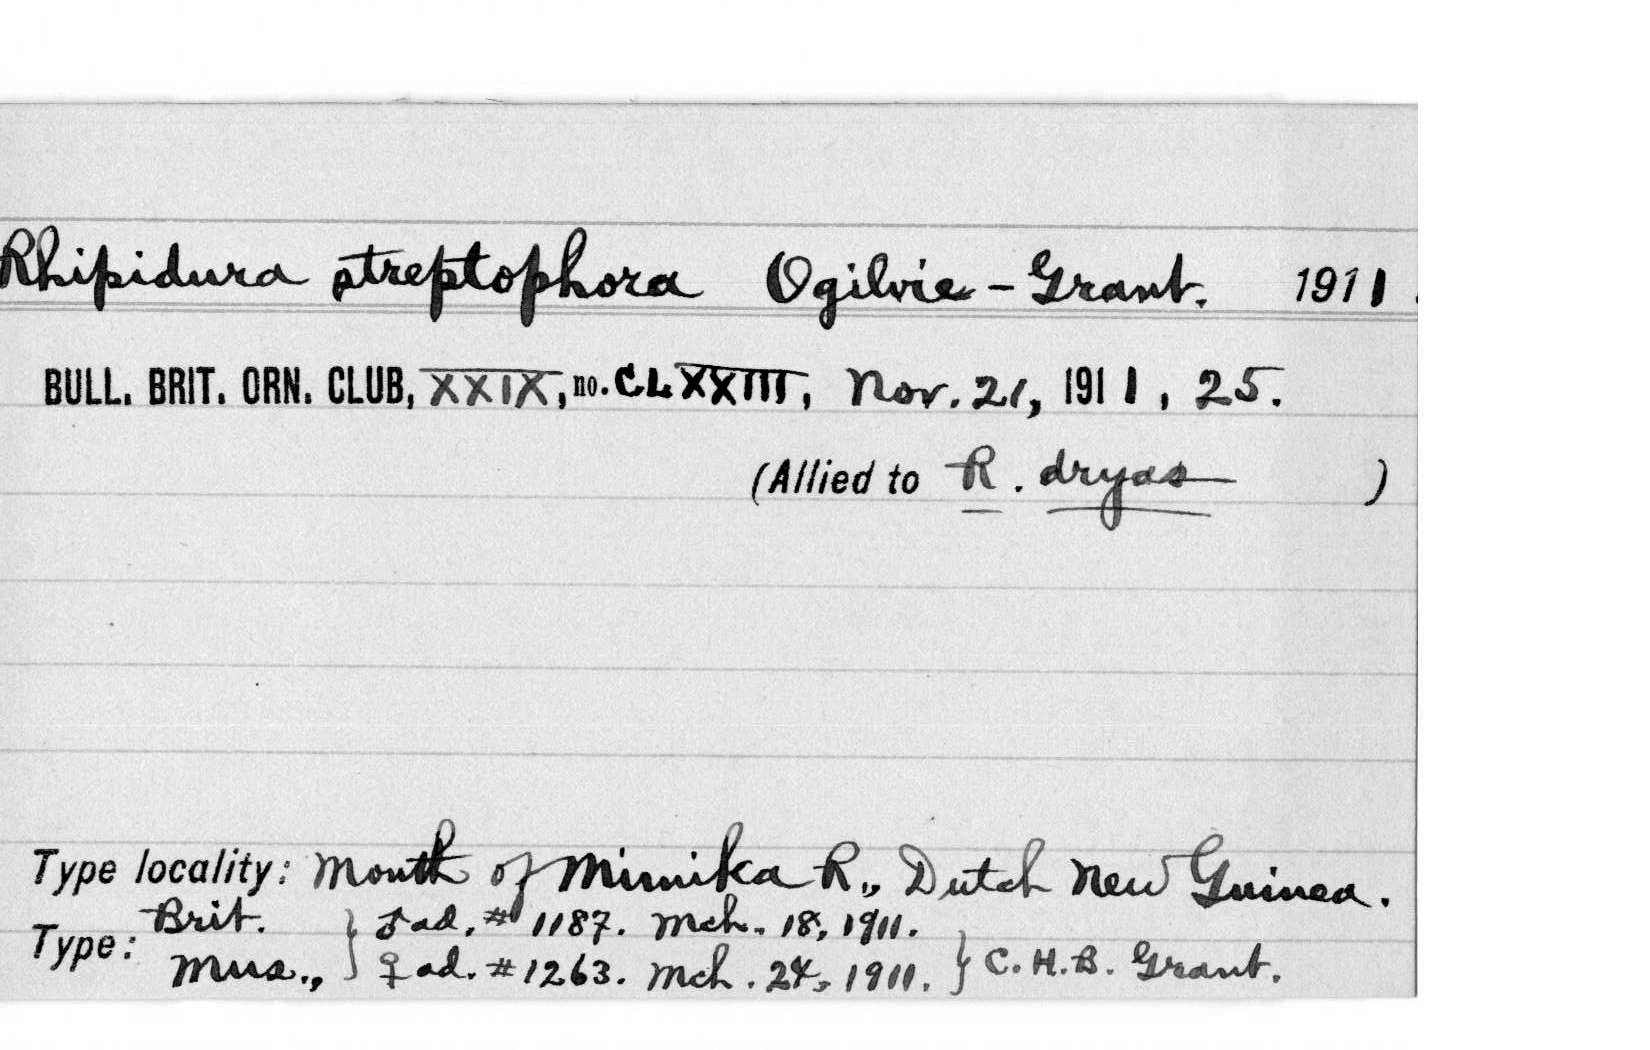 Rhipidura streptophora Ogilvie-Grant. 1911.
BULL. BRIT. ORN. CLUB, XXIX, no. CLXXIII, Nov. 21, 1911, 25.
(Allied to R. dryas)
Type locality: Mouth of Mimika R., Dutch New Guinea.
Type: Brit. Mus., } ♂ ad. #1187. Mch. 18, 1911.
♀ ad. #1263. Mch. 24, 1911. } C.H.B. Grant.